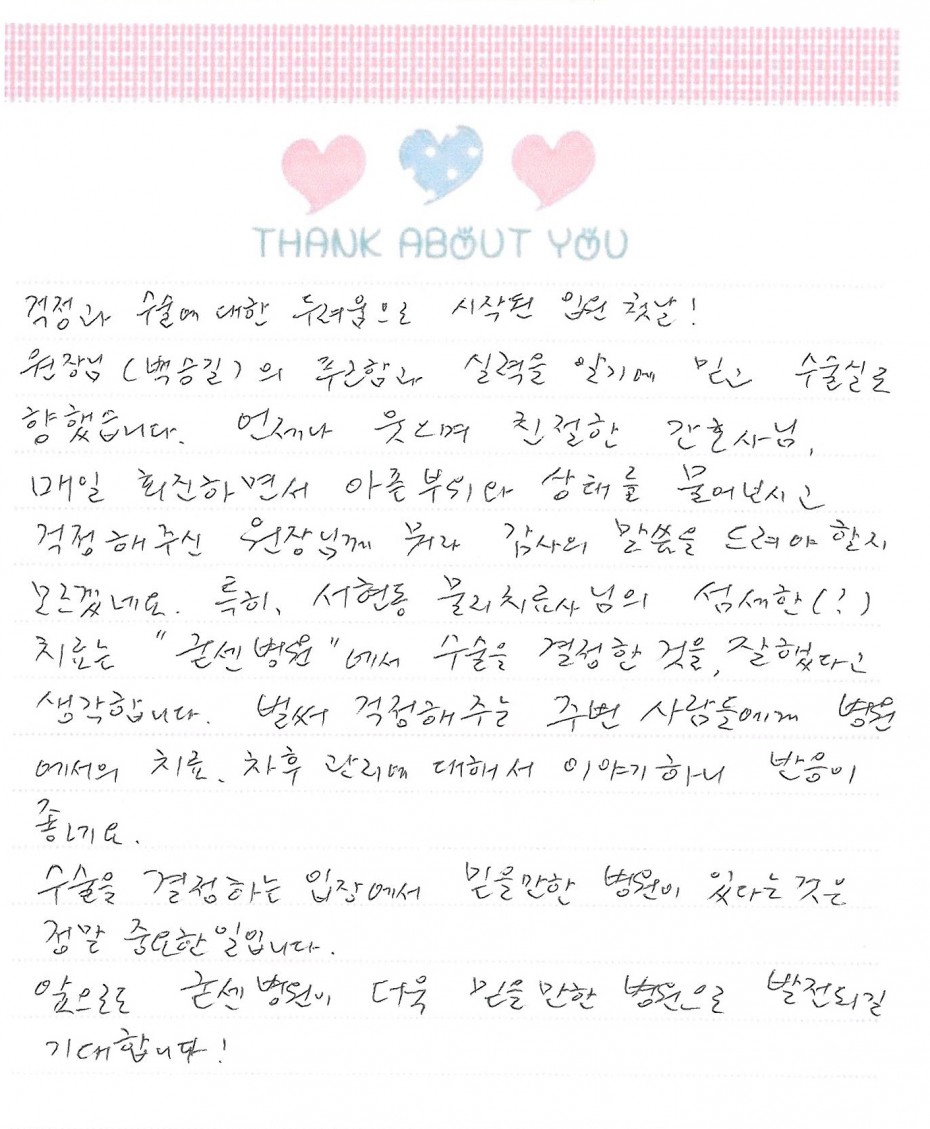 THANK ABOUT YOU
걱정과 수술에 대한 두려움으로 시작된 입원 첫날!
원장님 (백승길)의 푸근함과 실력을 알기에 믿고 수술실로
향했습니다. 언제나 웃으며 친절한 간호사님,
매일 회진하면서 아픈부위와 상태를 물어봐주시고
걱정해주신 원장님께 뭐라 감사의 말씀을 드려야 할지
모르겠네요. 특히, 서현동 물리치료사님의 섬세한(?)
치료는 "굳센병원"에서 수술을 결정한 것을, 잘했다고
생각합니다. 벌써 걱정해주는 주변 사람들에게 병원
에서의 치료, 차후 관리에 대해서 이야기하니 반응이
좋네요.
수술을 결정하는 입장에서 믿을만한 병원이 있다는것은
정말 중요한일입니다.
앞으로도 굳센병원이 더욱 믿을만한 병원으로 발전되길
기대합니다!